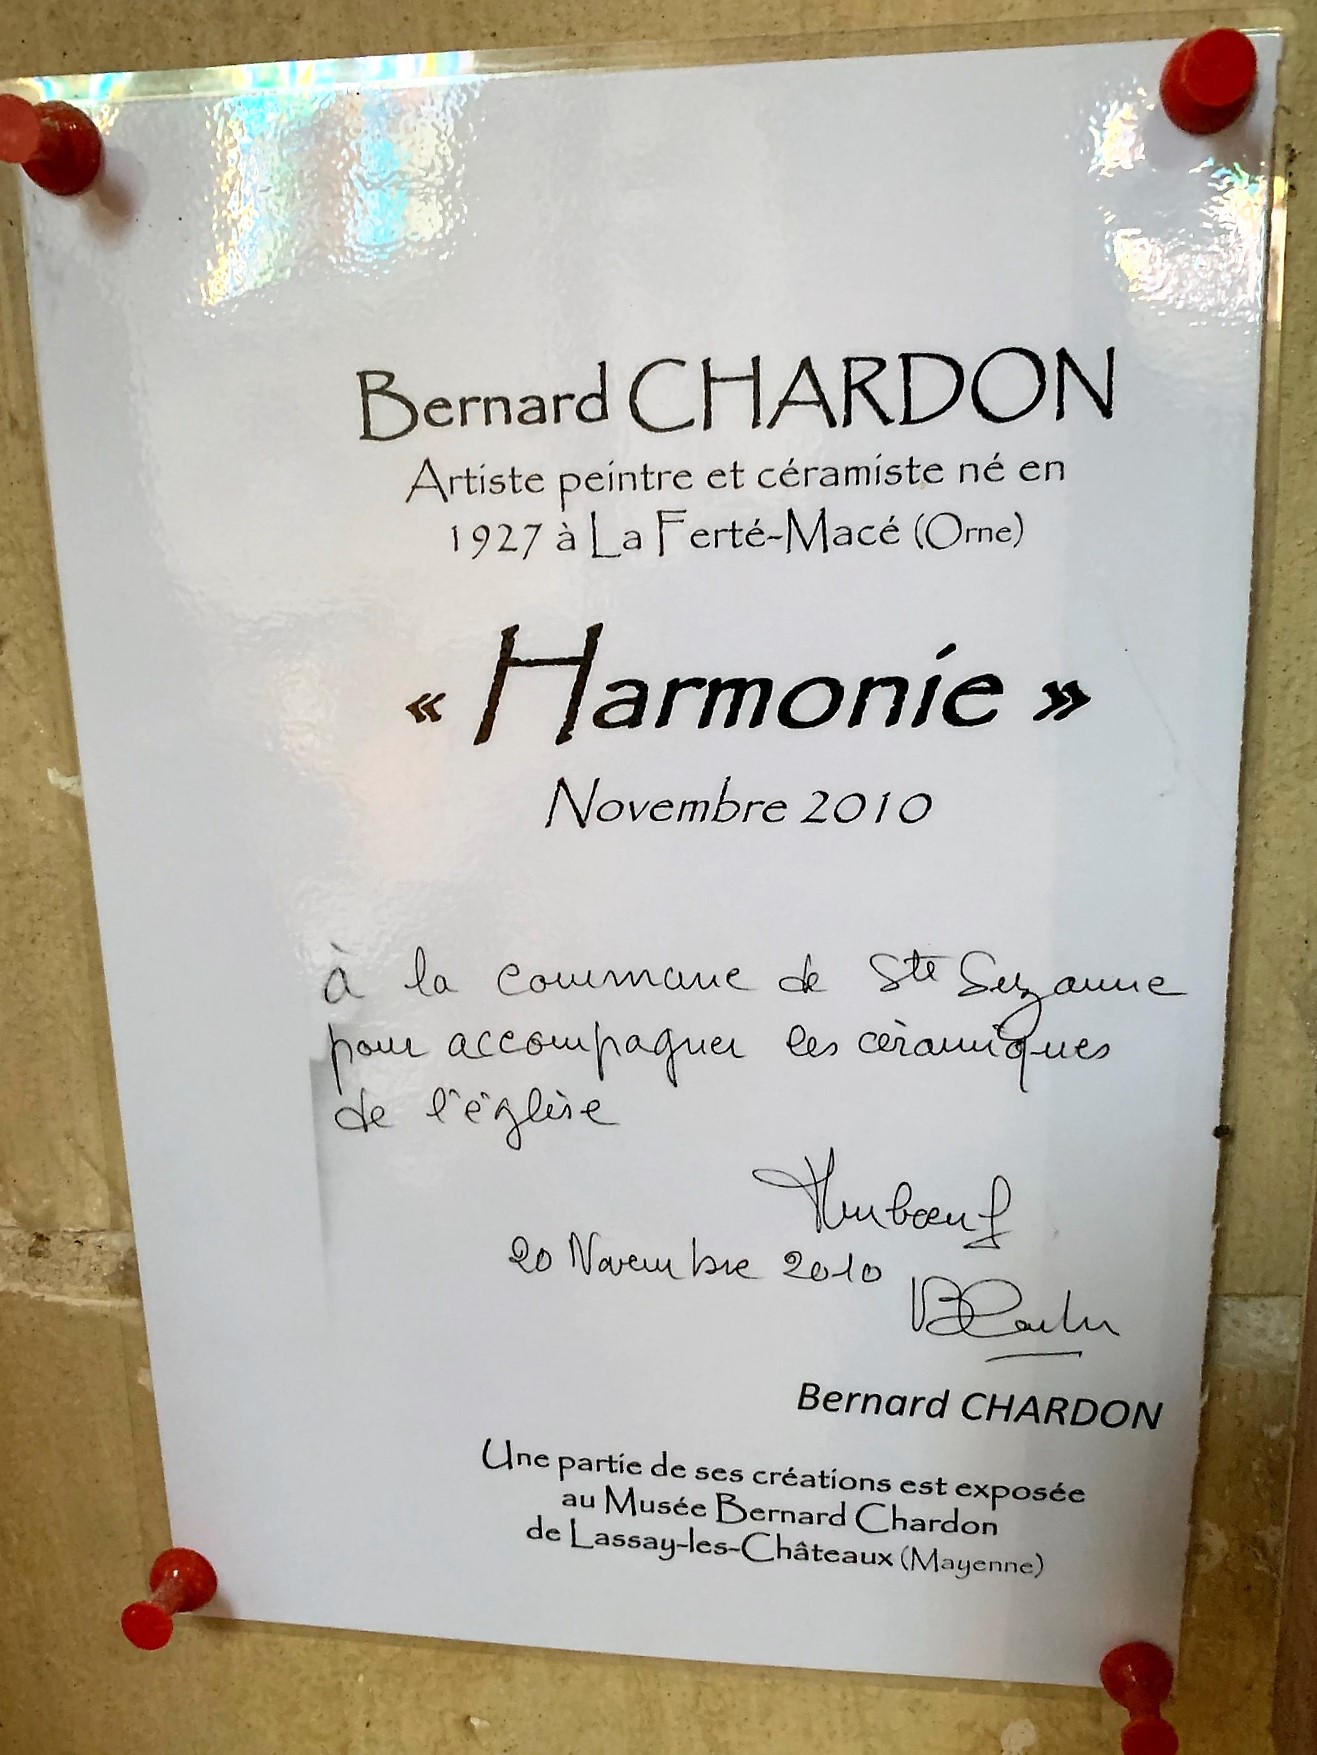 Bernard CHARDON
Artiste peintre et céramiste né en
1927 à La Ferté-Macé (Orne)
« Harmonie »
Novembre 2010
à la commune de Ste Suzanne
pour accompagner les céramiques
de l'église
20 Novembre 2010
Bernard CHARDON
Une partie de ses créations est exposée
au Musée Bernard Chardon
de Lassay-les-Châteaux (Mayenne)